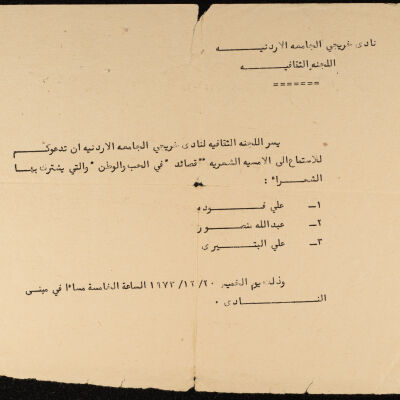 نادى خريجي الجامعه الاردنيه
اللجنه الثقافيه
=======
يسر اللجنه الثقافيه لنادى خريجي الجامعه الاردنيه ان تدعوكم
للاستماع الى الامسيه الشعريه " قصائد في الحب والوطن " والتي يشترك بها
الشعراء :
١ـ علي فوده
٢ـ عبدالله منصور
٣ـ علي البتيرى
وذلك يوم الخميس ٢٠/١٢/١٩٧٣ الساعة الخامسة مساءا في مبنى
النادى ٠